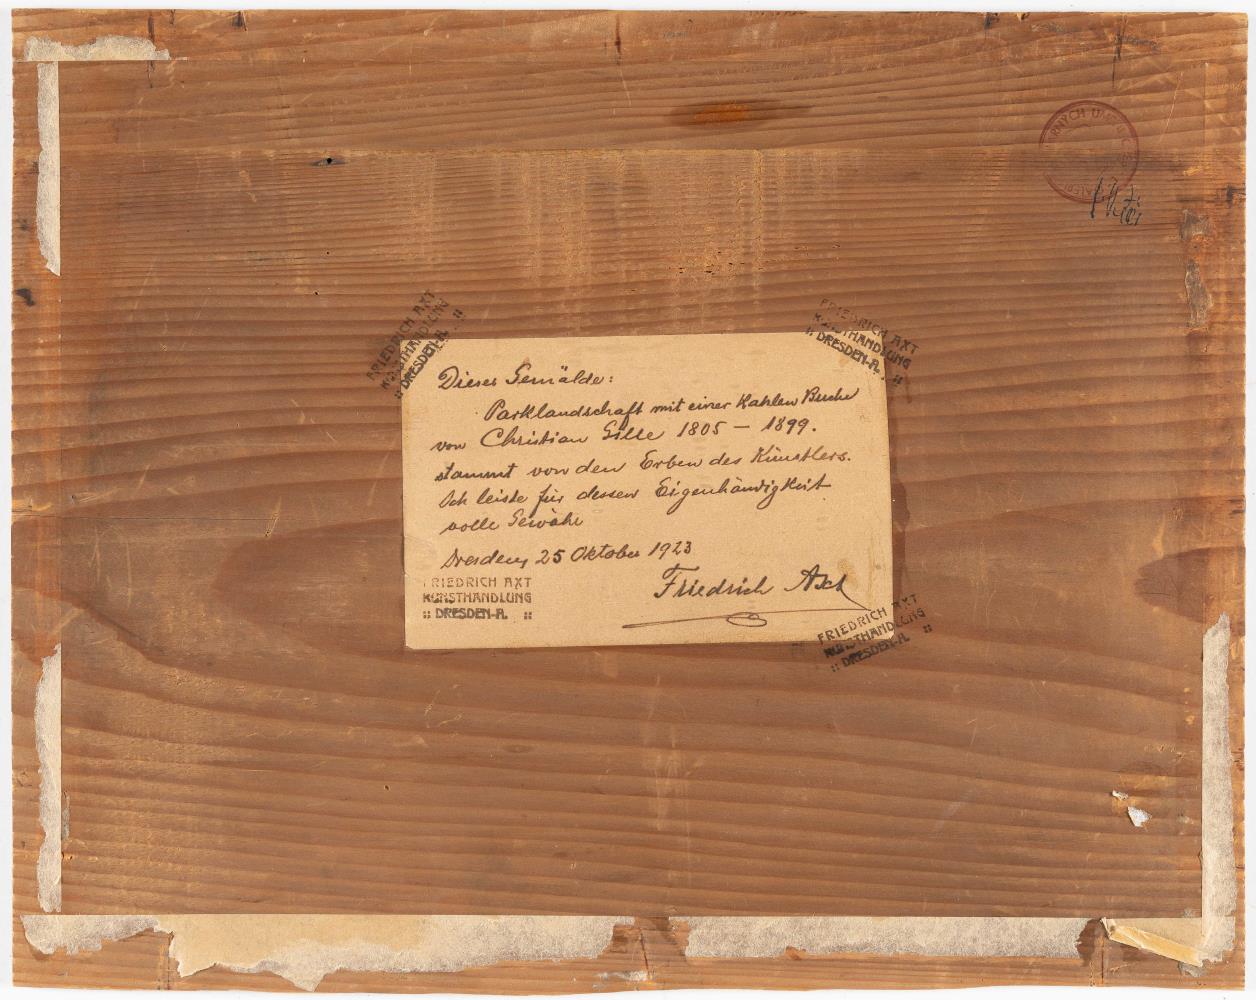 FRIEDRICH AXT
KUNSTHANDLUNG
:: DRESDEN-A. ::
FRIEDRICH AXT
KUNSTHANDLUNG
:: DRESDEN-A. ::
Dieses Gemälde:
Parklandschaft mit einer kahlen Buche
von Christian Gille 1805 – 1899.
stammt von den Erben des Künstlers.
Ich leiste für dessen Eigenhändigkeit
volle Gewähr
Dresden, 25 Oktober 1923
Friedrich Axt
FRIEDRICH AXT
KUNSTHANDLUNG
:: DRESDEN-A. ::
FRIEDRICH AXT
KUNSTHANDLUNG
:: DRESDEN-A. ::